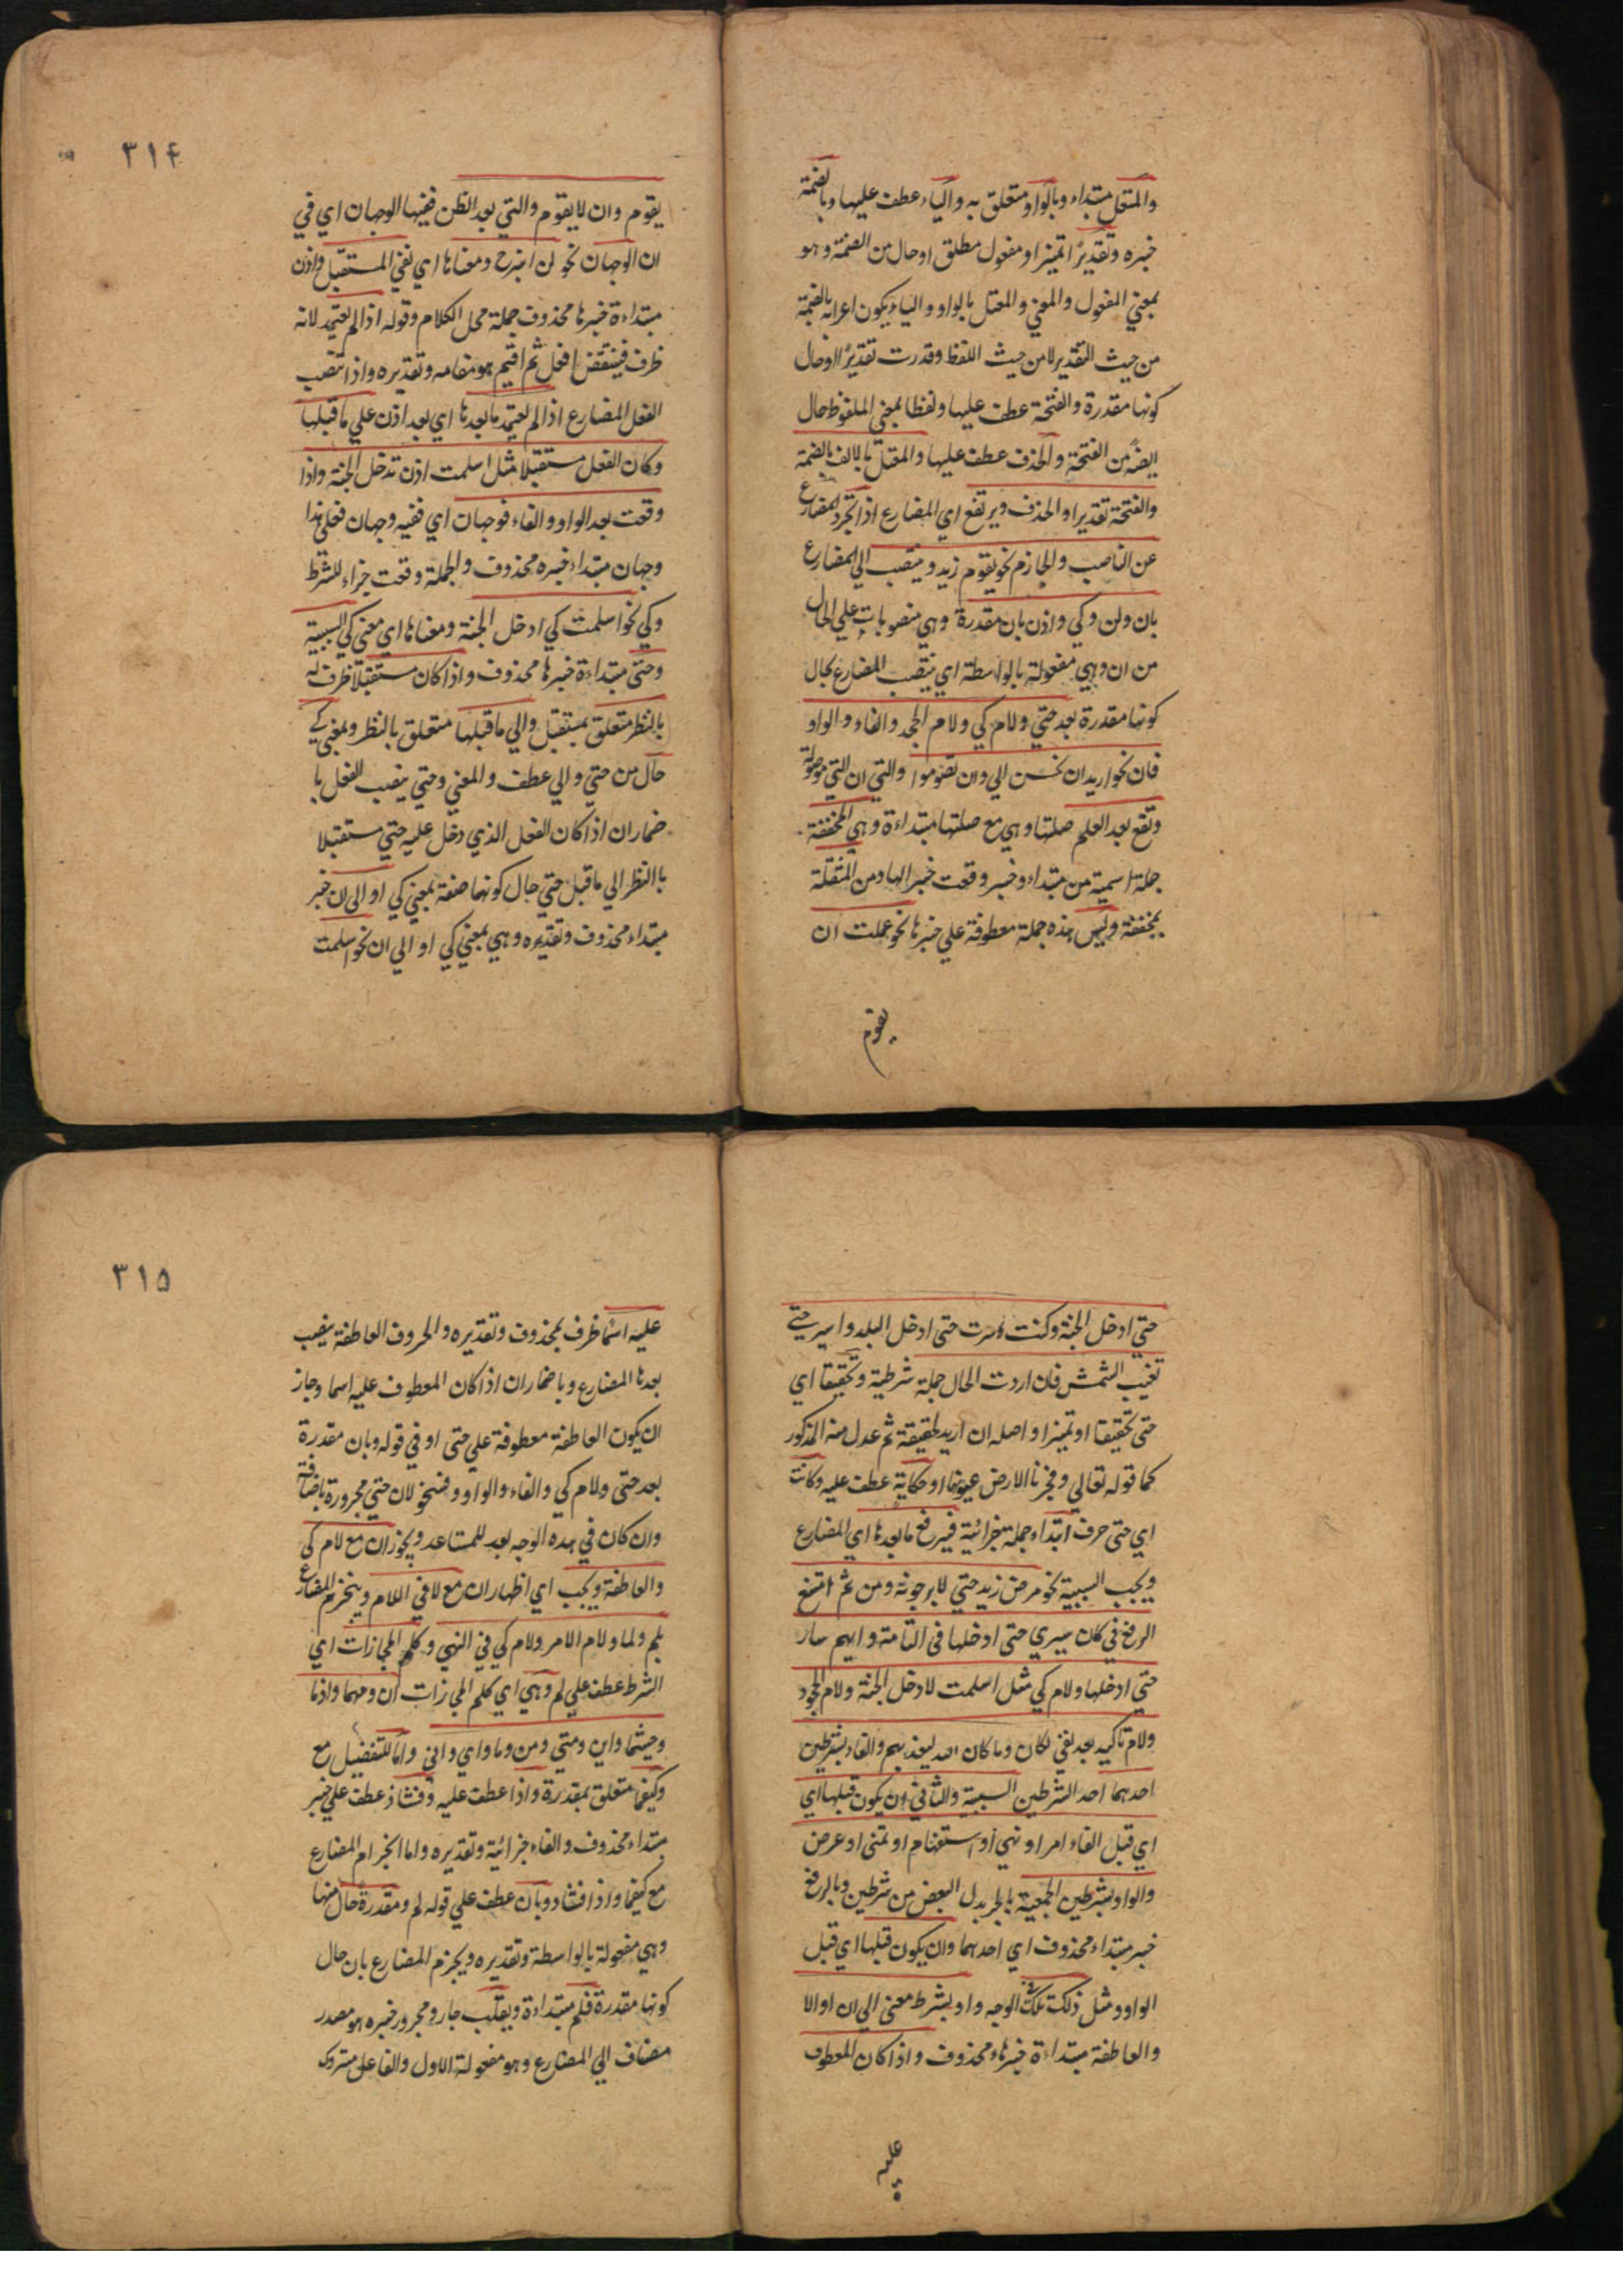 والمعتل مبتداء وبالواو متعلق به والياء عطف عليها وبالضمة
خبره وتقديرًا تميز او مفعول مطلق او حال من الضمة وهو
بمعني المفعول والمعني والمعتل بالواو والياء يكون اعرابه بالضمة
من حيث التقدير لا من حيث اللفظ وقدرت تقديرًا او حال
كونها مقدرة والفتحة عطف عليها ولفظا بمعني الملفوظ حال
ايضًا من الفتحة والحذف عطف عليها والمعتل بالالف بالضمة
والفتحة تقديرا والحذف ويرتفع اي المضارع اذا تجرد المضارع
عن الناصب والجازم نحو يقوم زيد وينتصب اي المضارع
بان ولن وكي واذن بان مقدرة وهي منصوبات علي الحال
من ان وهي مفعولة بالواسطة اي ينتصب المضارع بحال
كونها مقدرة بعد حتي ولام كي ولام الجحد والفاء والواو
فان نحو اريد ان تحسن الي وان تصوموا والتي ان التي موصولة
وتقع بعد العلم صلتها وهي مع صلتها مبتداءة وهي المخففة
جملة اسمية من مبتداء وخبر وقعت خبر الها ومن المثقلة
بمخففة وليس هذه جملة معطوفة علي خبرها نحو علمت ان
يقوم
٣١٤
يقوم وان لا يقوم والتي بعد الظن ففيها الوجهان اي في
ان الوجهان نحو لن ابرح ومعناها اي نفي المستقبل واذن
مبتداءة خبرها محذوف جملة محل الكلام وقوله اذا لم يعتمد لانه
ظرف فينتقض افعل ثم اقيم هو مقامه وتقديره واذا تنصب
الفعل المضارع اذا لم يعتمد ما بعدها اي بعد اذن علي ما قبلها
وكان الفعل مستقبلا مثل اسلمت اذن تدخل الجنة واذا
وقعت بعد الواو والفاء فوجهان اي ففيه وجهان فعلي هذا
وجهان مبتداء خبره محذوف والجملة وقعت جزاء للشرط
وكي نحو اسلمت كي ادخل الجنة ومعناها اي معني كي السببية
وحتي مبتداءة خبرها محذوف واذا كان مستقبلا ظرف له
بالنظر متعلق بمستقبل والي ما قبلها متعلق بالنظر وبمعني كي
حال من حتي والي عطف والمعني وحتي ينصب الفعل با
ضماران اذا كان الفعل الذي دخل عليه حتي مستقبلا
باالنظر الي ما قبل حتي حال كونها صفة بمعني كي او الي ان خبر
مبتداء محذوف وتقديره وهي بمعني كي او الي ان نحو اسلمت
حتي ادخل الجنة وكنت سرت حتي ادخل البلد واسير حتي
تغيب الشمش فان اردت الحال جملة شرطية وتحقيقا اي
حتي تحقيقا او تميز او اصله ان اريد لحقيقة ثم عدل منه المذكور
كما قوله تعالي وفجرنا الارض عيونا او حكاية عطف عليه وكانت
اي حتي حرف ابتداء وجملة جزائية فيرفع ما بعدها اي المضارع
ويجب السببية نحو مرض زيد حتي لا يرجونه ومن ثم امتنع
الرفع في كان سيري حتي ادخلها في التامة وايهم سار
حتي ادخلها ولام كي مثل اسلمت لادخل الجنة ولام الجحود
ولام تاكيد بعد نفي لكان وما كان الله ليعذبهم والفاء بشرطين
احدهما احد الشرطين السببية والثاني ان يكون قبلها اي
اي قبل الفاء امر او نهي او استفهام او تمني او عرض
والواو بشرطين الجمعية بالجر بدل البعض من شرطين وبالرفع
خبر مبتداء محذوف اي احدهما وان يكون قبلها اي قبل
الواو ومثل ذلك في تلك الوجه واو بشرط معني الي ان او الا
والعاطفة مبتداءة خبرها محذوف واذا كان المعطوف
عليه
٣١٥
عليه اسما ظرف لمحذوف وتقديره والحروف العاطفة ينصب
بعدها المضارع وباضماران اذا كان المعطوف عليه اسما وجاز
ان يكون العاطفة معطوفة علي حتي او في قوله وبان مقدرة
بعد حتي ولام كي والفاء والواو وفنحو لان حتي مجرورة باضافة
وان كان في هذه الوجه بعد للمتباعد ويجوز ان مع لام كي
والعاطفة ويجب اي اظهار ان مع لا في اللام وينجزم المضارع
بلم ولما ولام الامر ولام كي في النهي وكلم المجازات اي
الشرط عطف علي لم وهي اي كلم المجازات ان ومهما واذما
وحيثما واين ومتي ومن وما واي واني واما للتفضيل مع
وكيفما متعلق بمقدرة واذا عطف عليه وفشاذ عطف علي خبر
مبتداء محذوف والفاء جزائية وتقديره واما انجزام المضارع
مع كيفما واذا فشاذ وبان عطف علي قوله لم ومقدرة حال منها
وهي مفعولة بالواسطة وتقديره ويجزم المضارع بان حال
كونها مقدرة فلم مبتداءة ويقلب جار ومجرور خبره هو مصدر
مضاف الي المضارع وهو مفعولة الاول والفاعل متروك